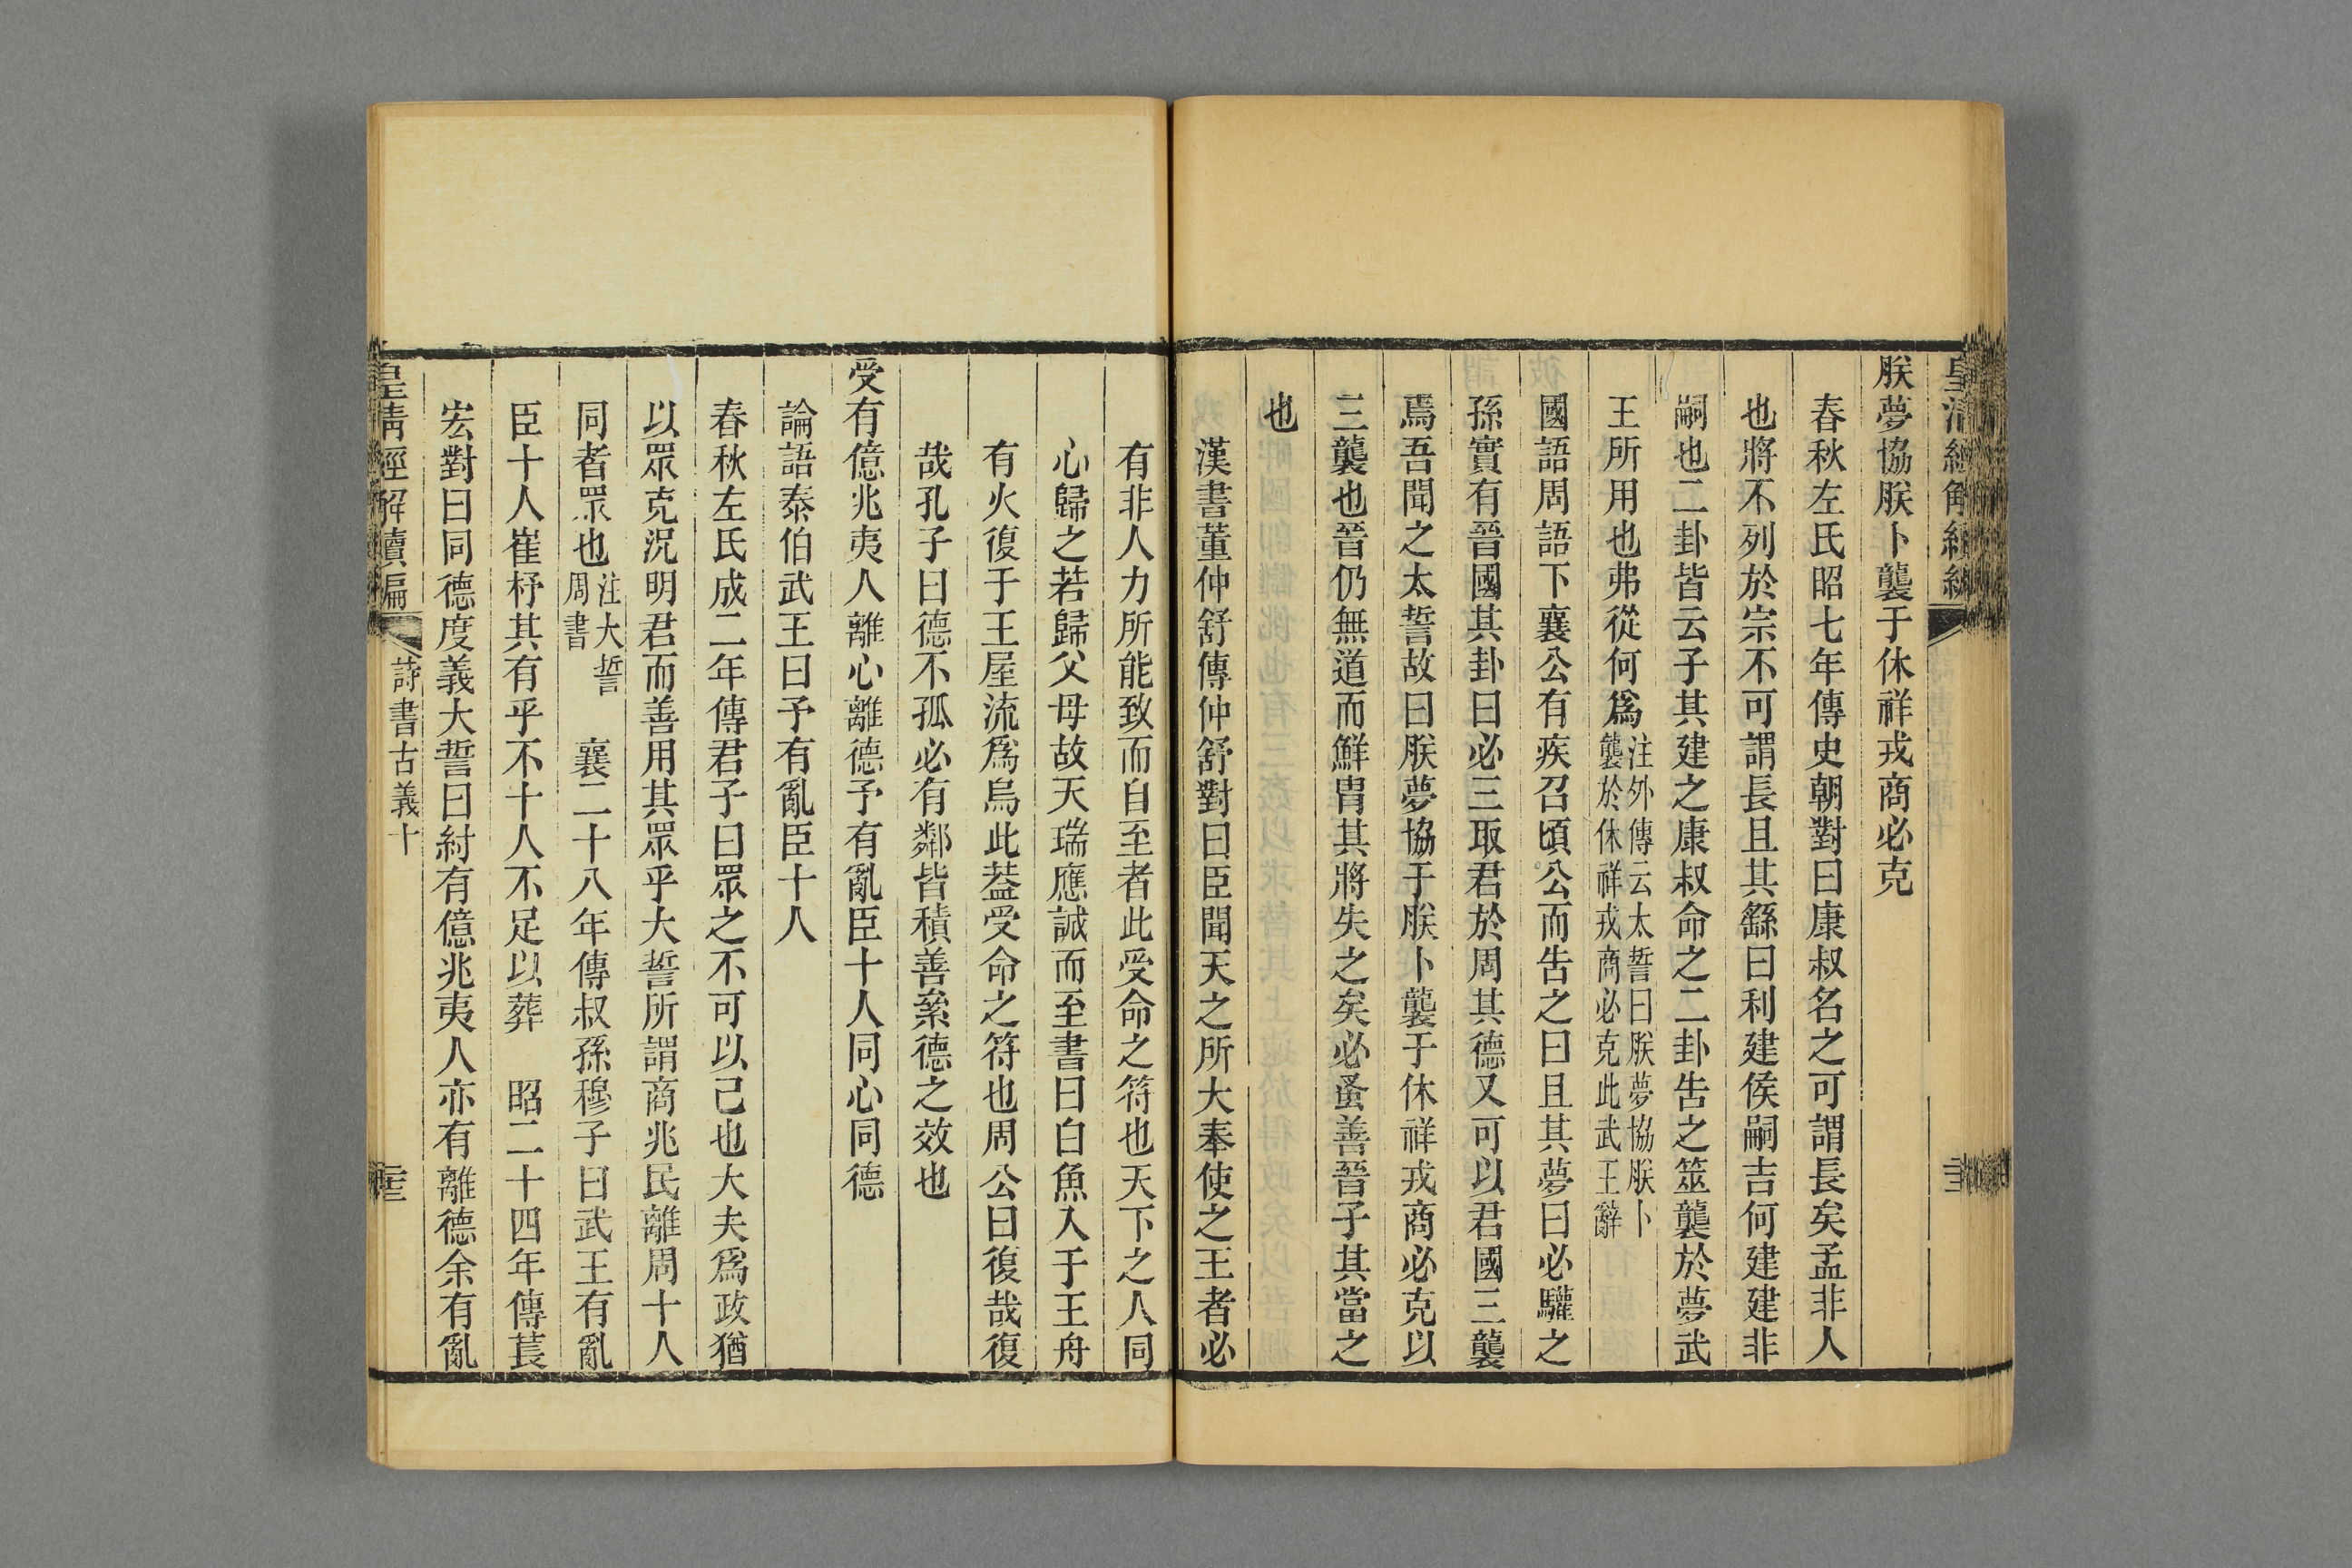 皇清經解續編
朕夢協朕卜襲于休祥戎商必克
春秋左氏昭七年傳史朝對曰康叔名之可謂長矣孟非人
也將不列於宗不可謂長且其繇曰利建侯嗣吉何建建非
嗣也二卦皆云子其建之康叔命之二卦吿之筮襲於夢武
王所用也弗從何爲
注外傳云太誓曰朕夢協朕卜
襲於休祥戎商必克此武王辭
國語周語下襄公有疾召頃公而吿之曰且其夢曰必驩之
孫實有晉國其卦曰必三取君於周其德又可以君國三襲
焉吾聞之太誓故曰朕夢協于朕卜襲于休祥戎商必克以
三襲也晉仍無道而鮮胄其將失之矣必蚤善晉子其當之
也
漢書董仲舒傳仲舒對曰臣聞天之所大奉使之王者必
有非人力所能致而自至者此受命之符也天下之人同
心歸之若歸父母故天瑞應誠而至書曰白魚入于王舟
有火復于王屋流爲烏此葢受命之符也周公曰復哉復
哉孔子曰德不孤必有鄰皆積善絫德之效也
受有億兆夷人離心離德予有亂臣十人同心同德
論語泰伯武王曰予有亂臣十人
春秋左氏成二年傳君子曰眾之不可以已也大夫爲政猶
以眾克況明君而善用其眾乎大誓所謂商兆民離周十人
同者眾也
注大誓
周書
襄二十八年傳叔孫穆子曰武王有亂
臣十人崔杼其有乎不十人不足以葬　昭二十四年傳萇
宏對曰同德度義大誓曰紂有億兆夷人亦有離德余有亂
皇清經解續編
詩書古義十